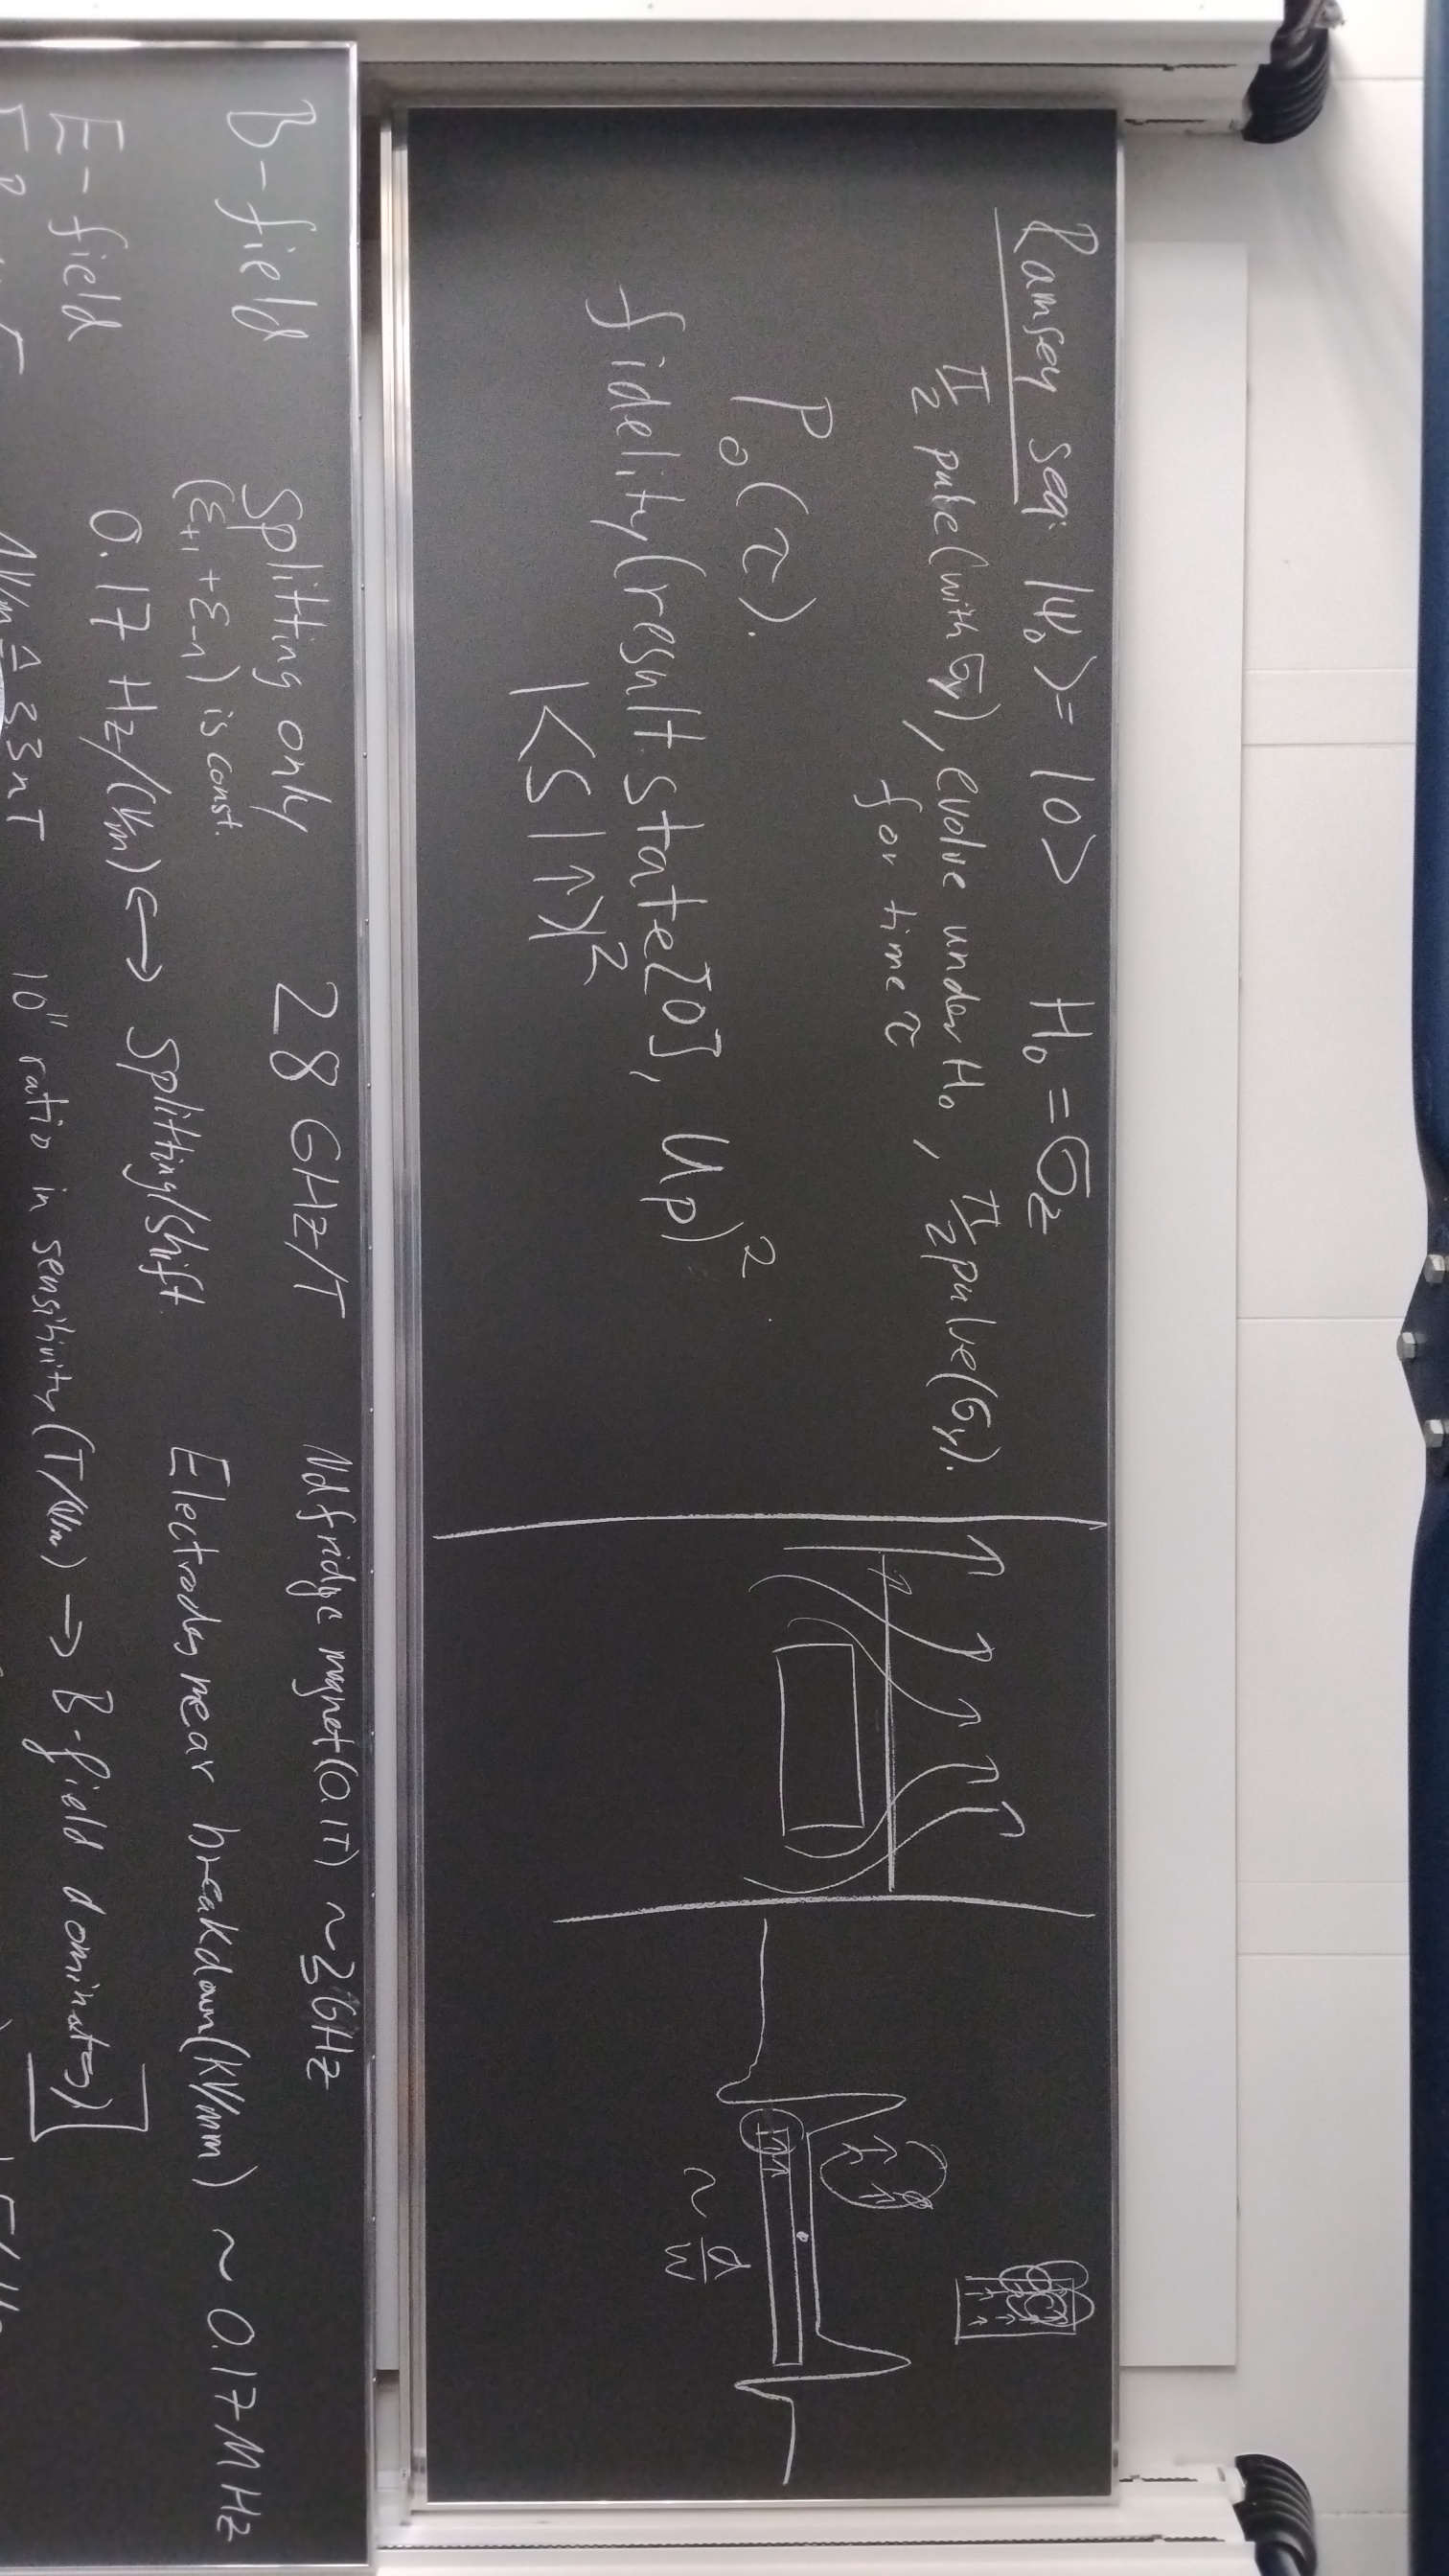 Ramsey seq: |ψ₀> = |0> H₀ = σz
π/2 pulse (with σy), evolve under H₀, π/2 pulse (σy).
for time τ
P₀(τ).
fidelity(result.state[0], up)²
|<S|↑>|²
~ d/w
B-field Splitting only 28 GHz/T Nd fridge magnet (0.1T) ~3GHz
(ε+1 + ε-1) is const.
E-field 0.17 Hz/(V/m) <-> Splitting/Shift Electrodes near breakdown (kV/mm) ~ 0.17 MHz
10" ratio in sensitivity (T/V/m) → B-field dominates